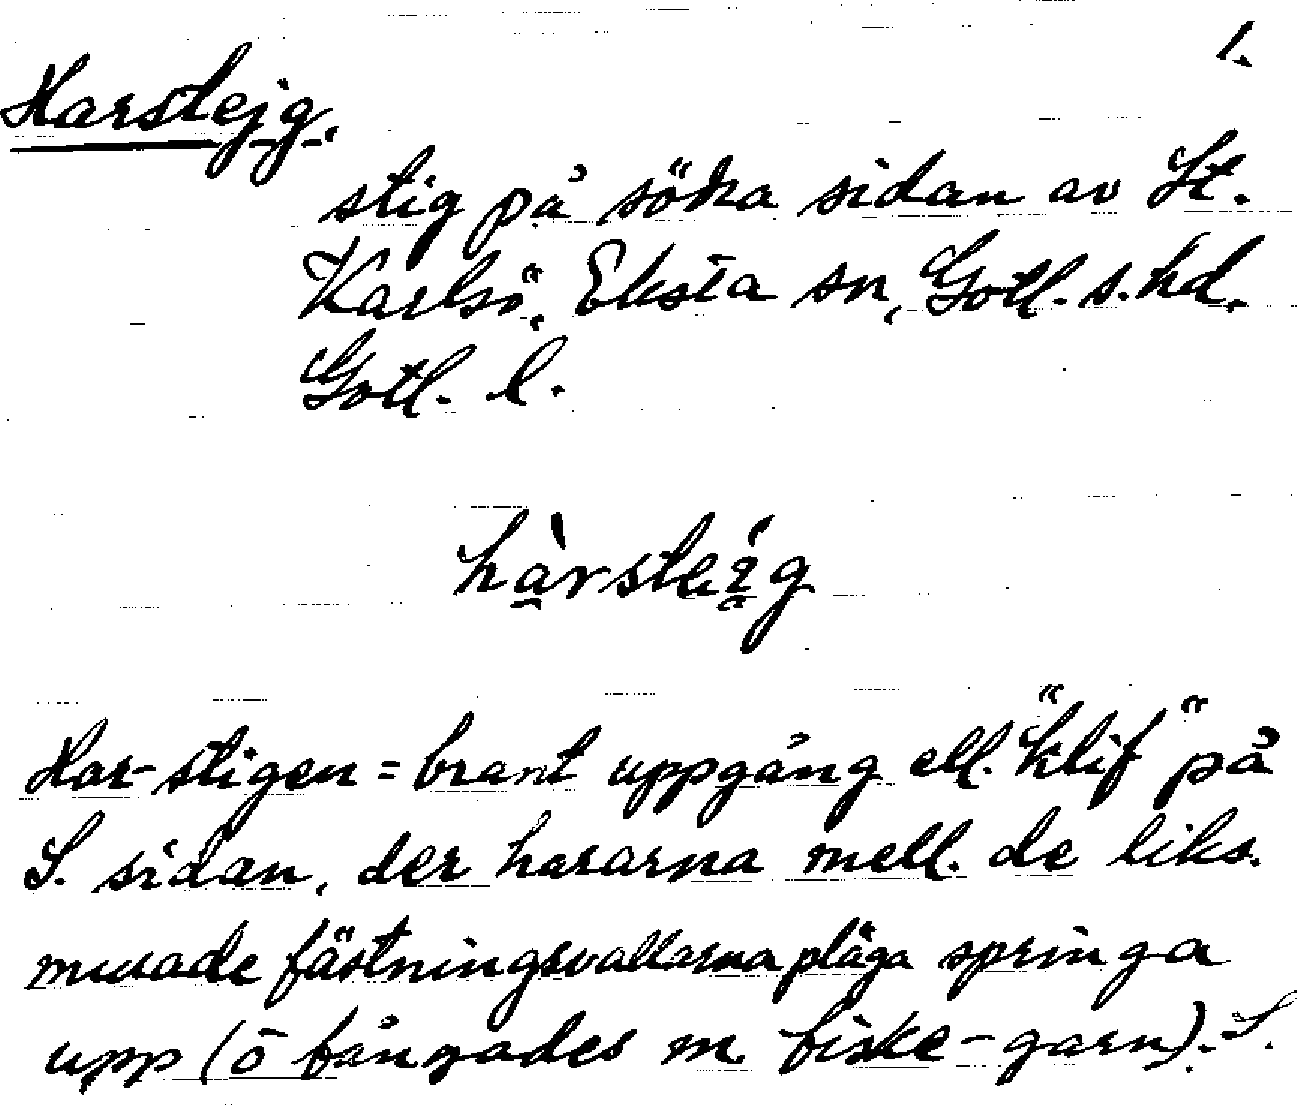 1.
Harstejg.
stig på södra sidan av St.
Karlsö, Eksta sn, Gotl. s. hd.
Gotl. l.
hàrstei̯g
Har-stigen = brant uppgång ell. "klif" på
S. sidan, der hararna mell. de liks.
murade fästningsvallarna pläga springa
upp (ō fångades m. fiske-garn). S.